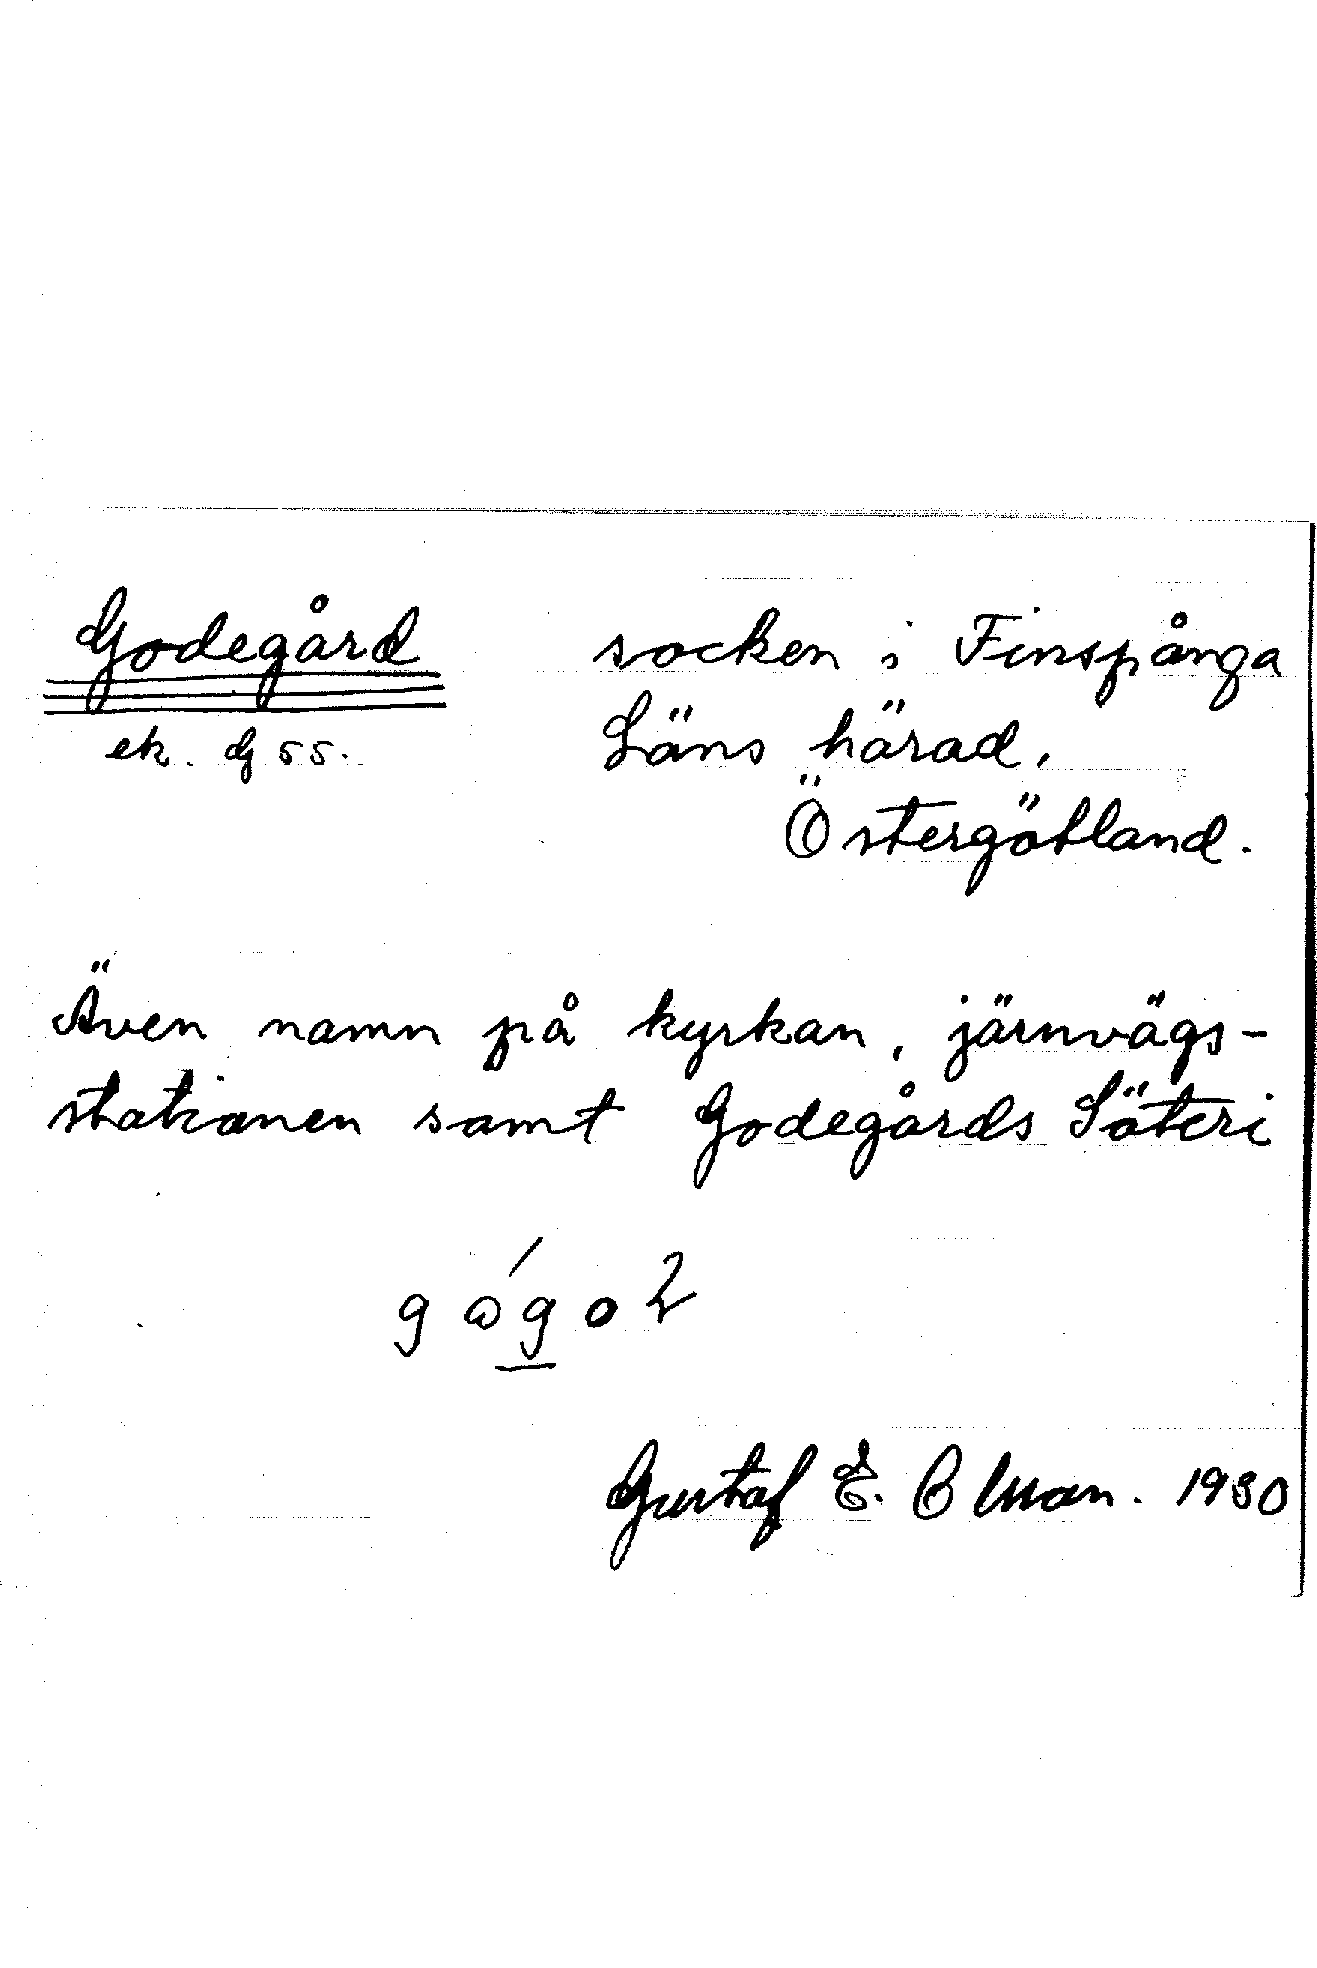 Godegård socken i Finspånga
ek. G 55. Läns härad,
Östergötland.
Även namn på kyrkan, järnvägs-
stationen samt Godegårds Säteri
Gustaf E. Olsson. 1930